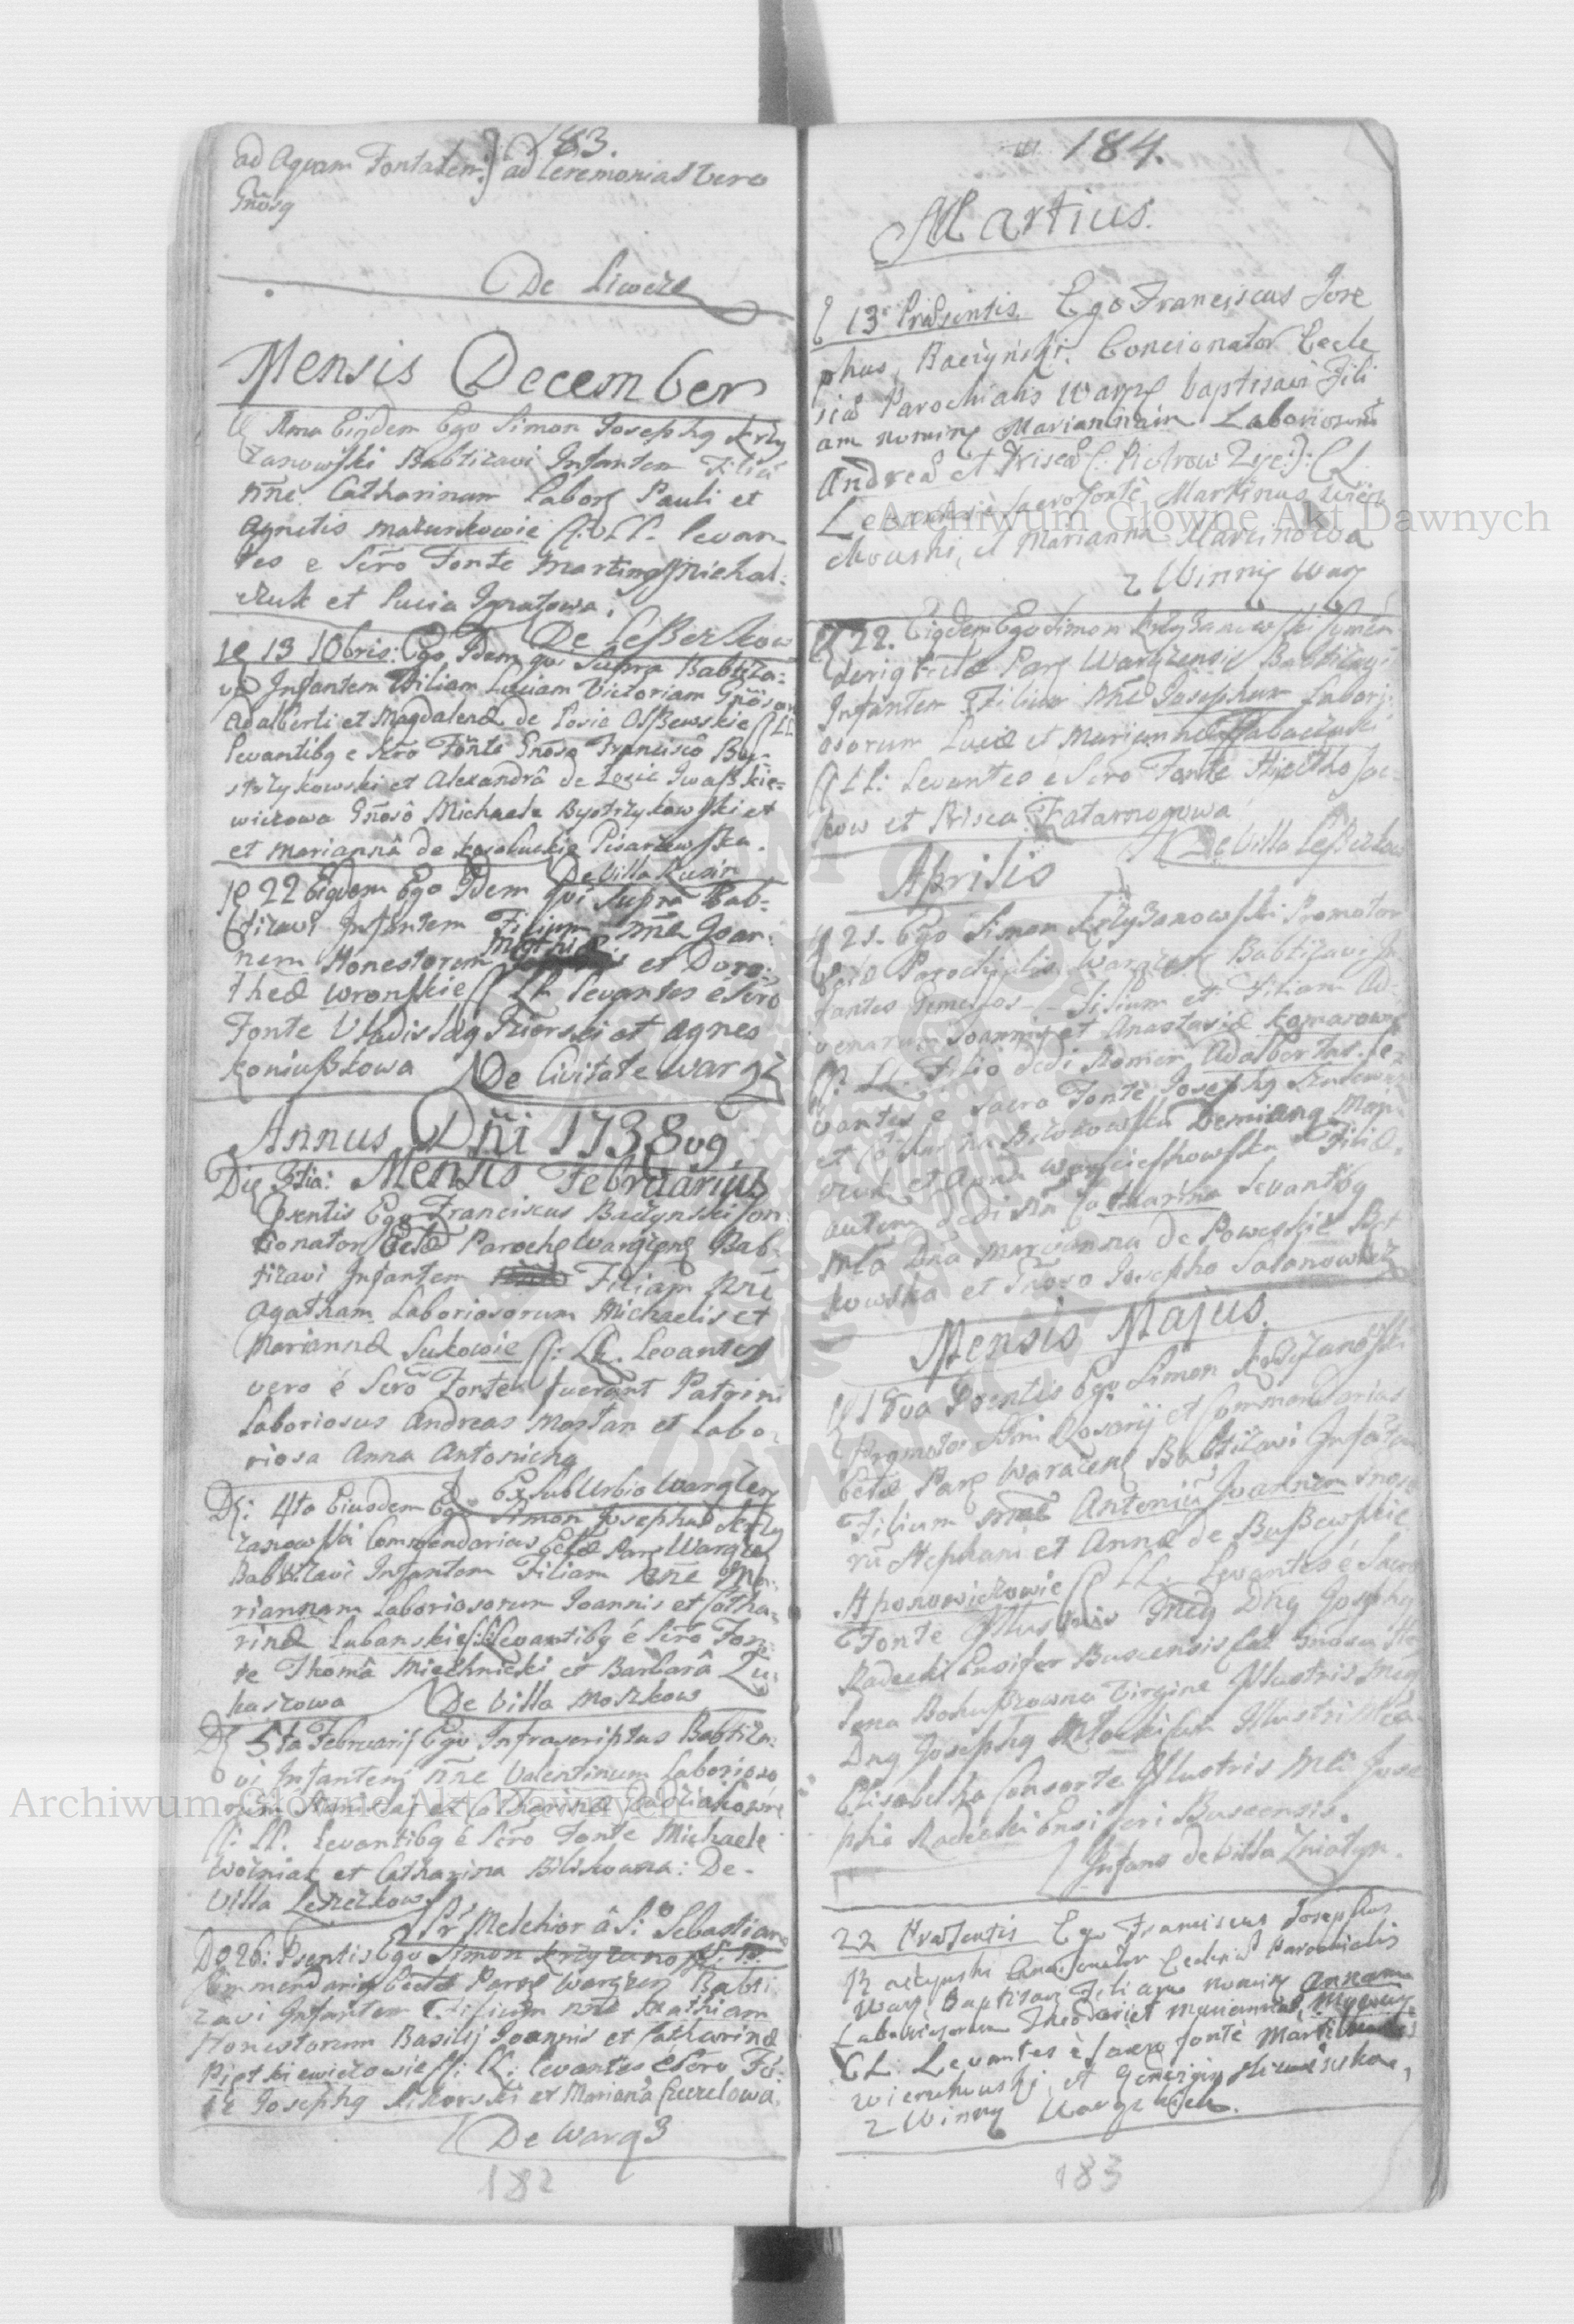 183.
ad Aquam Fontalem:) ad Ceremonias vero
Gnosg
De Liwcze
Mensis December
Ima Eigdem Ego Simon Josephg Krzy
żanowski Babtizavi Infantem Filiā
nn̄e Catharinam Labor Pauli et
Agnetis Mazurkowie LL. levan
tes e Scro Fonte Marting Michal-
czuk et Lucia Ignatowa.
De Leßczkow
13 10bris: Ego Idem qui Supra Babtiza-
vi Infantem Filiam Luciam Victoriam Gnōsor
Adalberti et Magdalenæ de Losie Olßewskie LL
levantibg e Scro Fonte Gnoso Francisco By-
strzykowski et Alexandrâ de Lozie Iwaßkie-
wiczowa Gnōsô Michaele Bystrzykowski et
et Mariannâ de Kosoluckie Pisarzewska.
De Villa Rusin
22 Eigdem Ego Idem qui Supra Bab-
tizavi Infantem Filium nn̄e Joan-
nem Honestorum Mathiæ et Doro-
theæ Wronskie LL levantes é Scro
Fonte Vladislag Fiiorski et Agnes
Koniußzowa De Civitate Warąż
Annus Dn̄i 1738vg
Die 3tia: Mensis Februarius
Psentis Ego Franciscus Baczynski Con
cionator Ecclæ Paroch Warązens Bab-
tizavi Infantem Filiam nn̄e
Agatham Laboriosorum Michaelis et
Mariannæ Sukowie LL. Levantes
vero é Scro Fonte fuerunt Patrini
Laboriosus Andreas Mastan et Labo-
riosa Anna Antonicha
Ex SubUrbio Warążen
D: 4ta Eiusdem Ego Simon Josephus Krzy
żanowski Commendarius Ecclæ Par Warąż
Babtizavi Infantem Filiam nn̄e Ma-
riannam Laboriosorum Joannis et Catha-
rinæ Lubanskie LL: levantibg é Scro Fon-
te Thomâ Miechnicki et Barbarâ Lu-
kaszowa De Villa Moszkow
D 5ta Februarij Ego Infrascriptus Babtiza-
vi Infantem nn̄e Valentinum Laborioso
rum Stanislai et Catharinæ
LL. levantibg é Scro Fonte Michaele
Wozniak et Catharina Bilikowna: De-
Villa Leszczkow
Pr Melchior â S: Sebastiano
D 26: Psentis Ego Simon Krzyżanowski
Commendarig Ecclæ Par Warąz Babti
zavi Infantem Filium nn̄e Mathiam
Honestorum Basilij Joannis et Catharinæ
Piotkiewiczowie LL: levantes é Scro Fō-
te Josephg Sikorski et Mariana Cuzelowa.
De Warąż
182
184.
Martius.
13 Præsentis Ego Franciscus Jose
phus, Baczyński. Concionator Eccle
siæ Parochialis Warąż baptisavi Fili
am nomine Mariannam Laboriosorum
Andreæ et Priscæ (: Pietrow Zięć:) LL
Levantes è sacro fonte Martinus
et Marianna Marcinowa
z Winnig Warąż
22. Eigdem Ego Simon Krzyżanowski
Ecclæ Par Warązensis Babtizavi
Infantem Filium nn̄e Josephum Labori-
osorum Lucæ et Mariannæ
LL: levantes e Scro Fonte
kow et Prisca Fatarzonowa
De Villa Leßczkow
Aprilis
21. Ego Simon Krzyżanowski Promotor
Parochialis Warążen Babtizavi In-
fantes Gemellos Filium et Filiam Ad-
venarum Joannis et Anastasiæ Komarowie
LL. Filio dedi Nomen Adalbertus. Le-
vantes e Sacro Fonte Josephg
et Demiang
et Anna Woyciechowska Filiæ
autem dedi nn̄ Catharina levantibg
Mta Dna Marianna de Powęskie
kowska et Gnoso Josepho Satanowicz
Mensis Majus.
18va Psentis Ego Simon Krzyżanowski
Promotor Smi Rosarij et Commendarius
Ecclæ Par Warążens Babtizavi Infātem
Filium nn̄e Antoniū Joannem Gnoso
rū Stephani et Annæ de Bußewskie
Aponowiczowie LL. Levantes é Sacro
Fonte Illustris Mcg Dng Josephg
Radecki Ensifer Buscensis Cum Gnosa He
lena Bohußzowna Virgine Illustris Mcg
Dng Josephg Cum Illustri Mca
Elisabetha Consorte Illustris Mci Jose
phi Radecki Ensiferi Buscensis.
Infans de Villa Żniatyn.
22 Præsentis Ego Franciscus Josephus
Baczynski Concionator Ecclesiæ Parochialis
Warąż Baptisavi Filiam nomine Annam
Laboriosorum Theodori et Mariannæ
LL. Levantes è sacro fonte Martinus
Wierzchowski, et
z Winnig Warązkich.
183
Archiwum Główne Akt Dawnych
Archiwum Główne Akt Dawnych